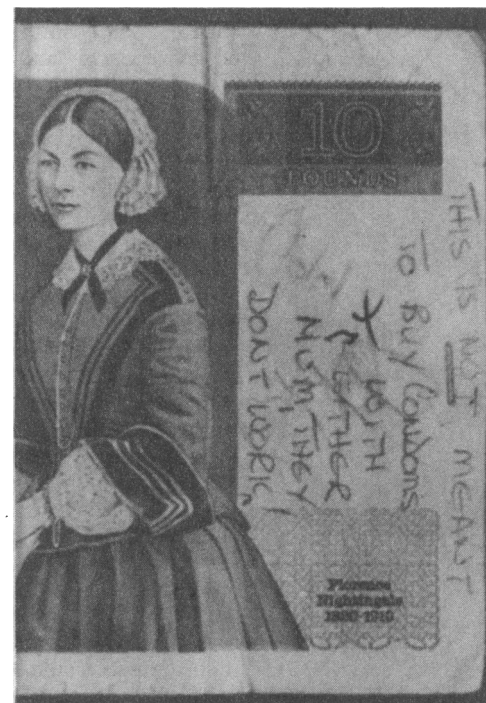 10
POUNDS
THIS IS NOT MEANT
TO BUY CONDOMS
WITH
MUM, THEY
DONT WORK!
Florence
Nightingale
1820-1910